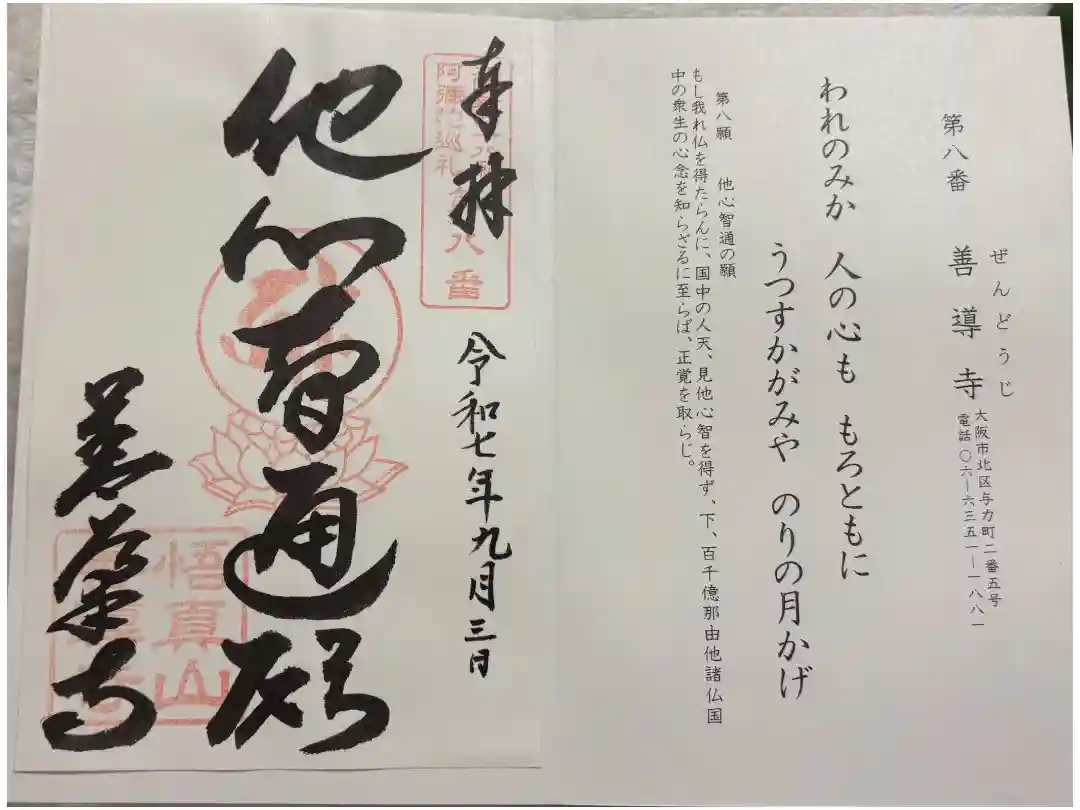 第八番　善導寺
ぜんどうじ
大阪市北区与力町二番五号
電話〇六ー六三五一ー一八八一
われのみか　人の心も　もろともに
うつすかがみや　のりの月かげ
第八願　他心智通の願
もし我れ仏を得たらんに、国中の人天、見他心智を得ず、下、百千億那由他諸仏国
中の衆生の心念を知らざるに至らば、正覚を取らじ。
奉拝
令和七年九月三日
阿彌陀巡礼
八番
他心智通願
善導寺
悟真山